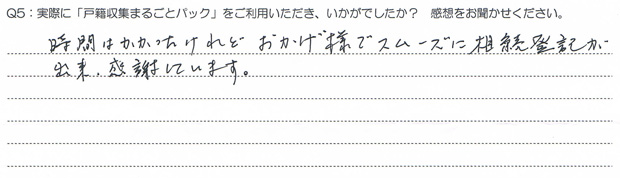 Q5：実際に「戸籍収集まるごとパック」をご利用いただき、いかがでしたか？ 感想をお聞かせください。
時間はかかったけれど おかげ様でスムーズに相続登記が
出来、感謝しています。